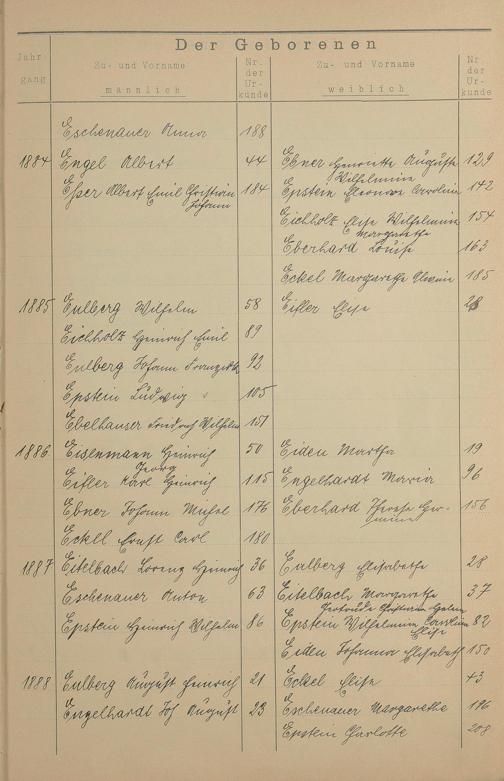 Der Geborenen
Jahrgang | Zu- und Vorname männlich | Nr. der Urkunde | Zu- und Vorname weiblich | Nr. der Urkunde
Eschenauer Anna 188
1884 Engel Albert 44 Ebner Henriette Auguste Wilhelmine 129
Esser Albert Emil Christian Johann 184 Epstein Eleonore Carolin 142
Eichholz Elise Wilhelmine Margarethe 154
Eberhard Louise 163
Eckel Margarethe 185
1885 Eulberg Wilhelm 58 Eifler Elise
Eichholz Heinrich Emil 89
Eulberg Johann 92
Epstein Ludwig 105
Ebelhäuser Friedrich Wilhelm 151
1886 Eisenmann Heinrich Georg 50 Eiden Martha 19
Eifler Karl Heinrich 115 Engelhardt Maria 96
Ebner Johann Michel 176 Eberhard Therese Hermine 156
Eckel Ernst Carl 180
1887 Eitelbach Lorenz Heinrich 36 Eulberg Elisabethe 28
Eschenauer Anton 63 Eitelbach Margarethe Gertrude 37
Epstein Heinrich Wilhelm 86 Epstein Wilhelmine Caroline Elise 82
Eiden Johanna Elisabeth 150
1888 Eulberg August Heinrich 21 Eckel Elise 43
Engelhardt Joh August 23 Eschenauer Margarethe
Epstein Charlotte 208